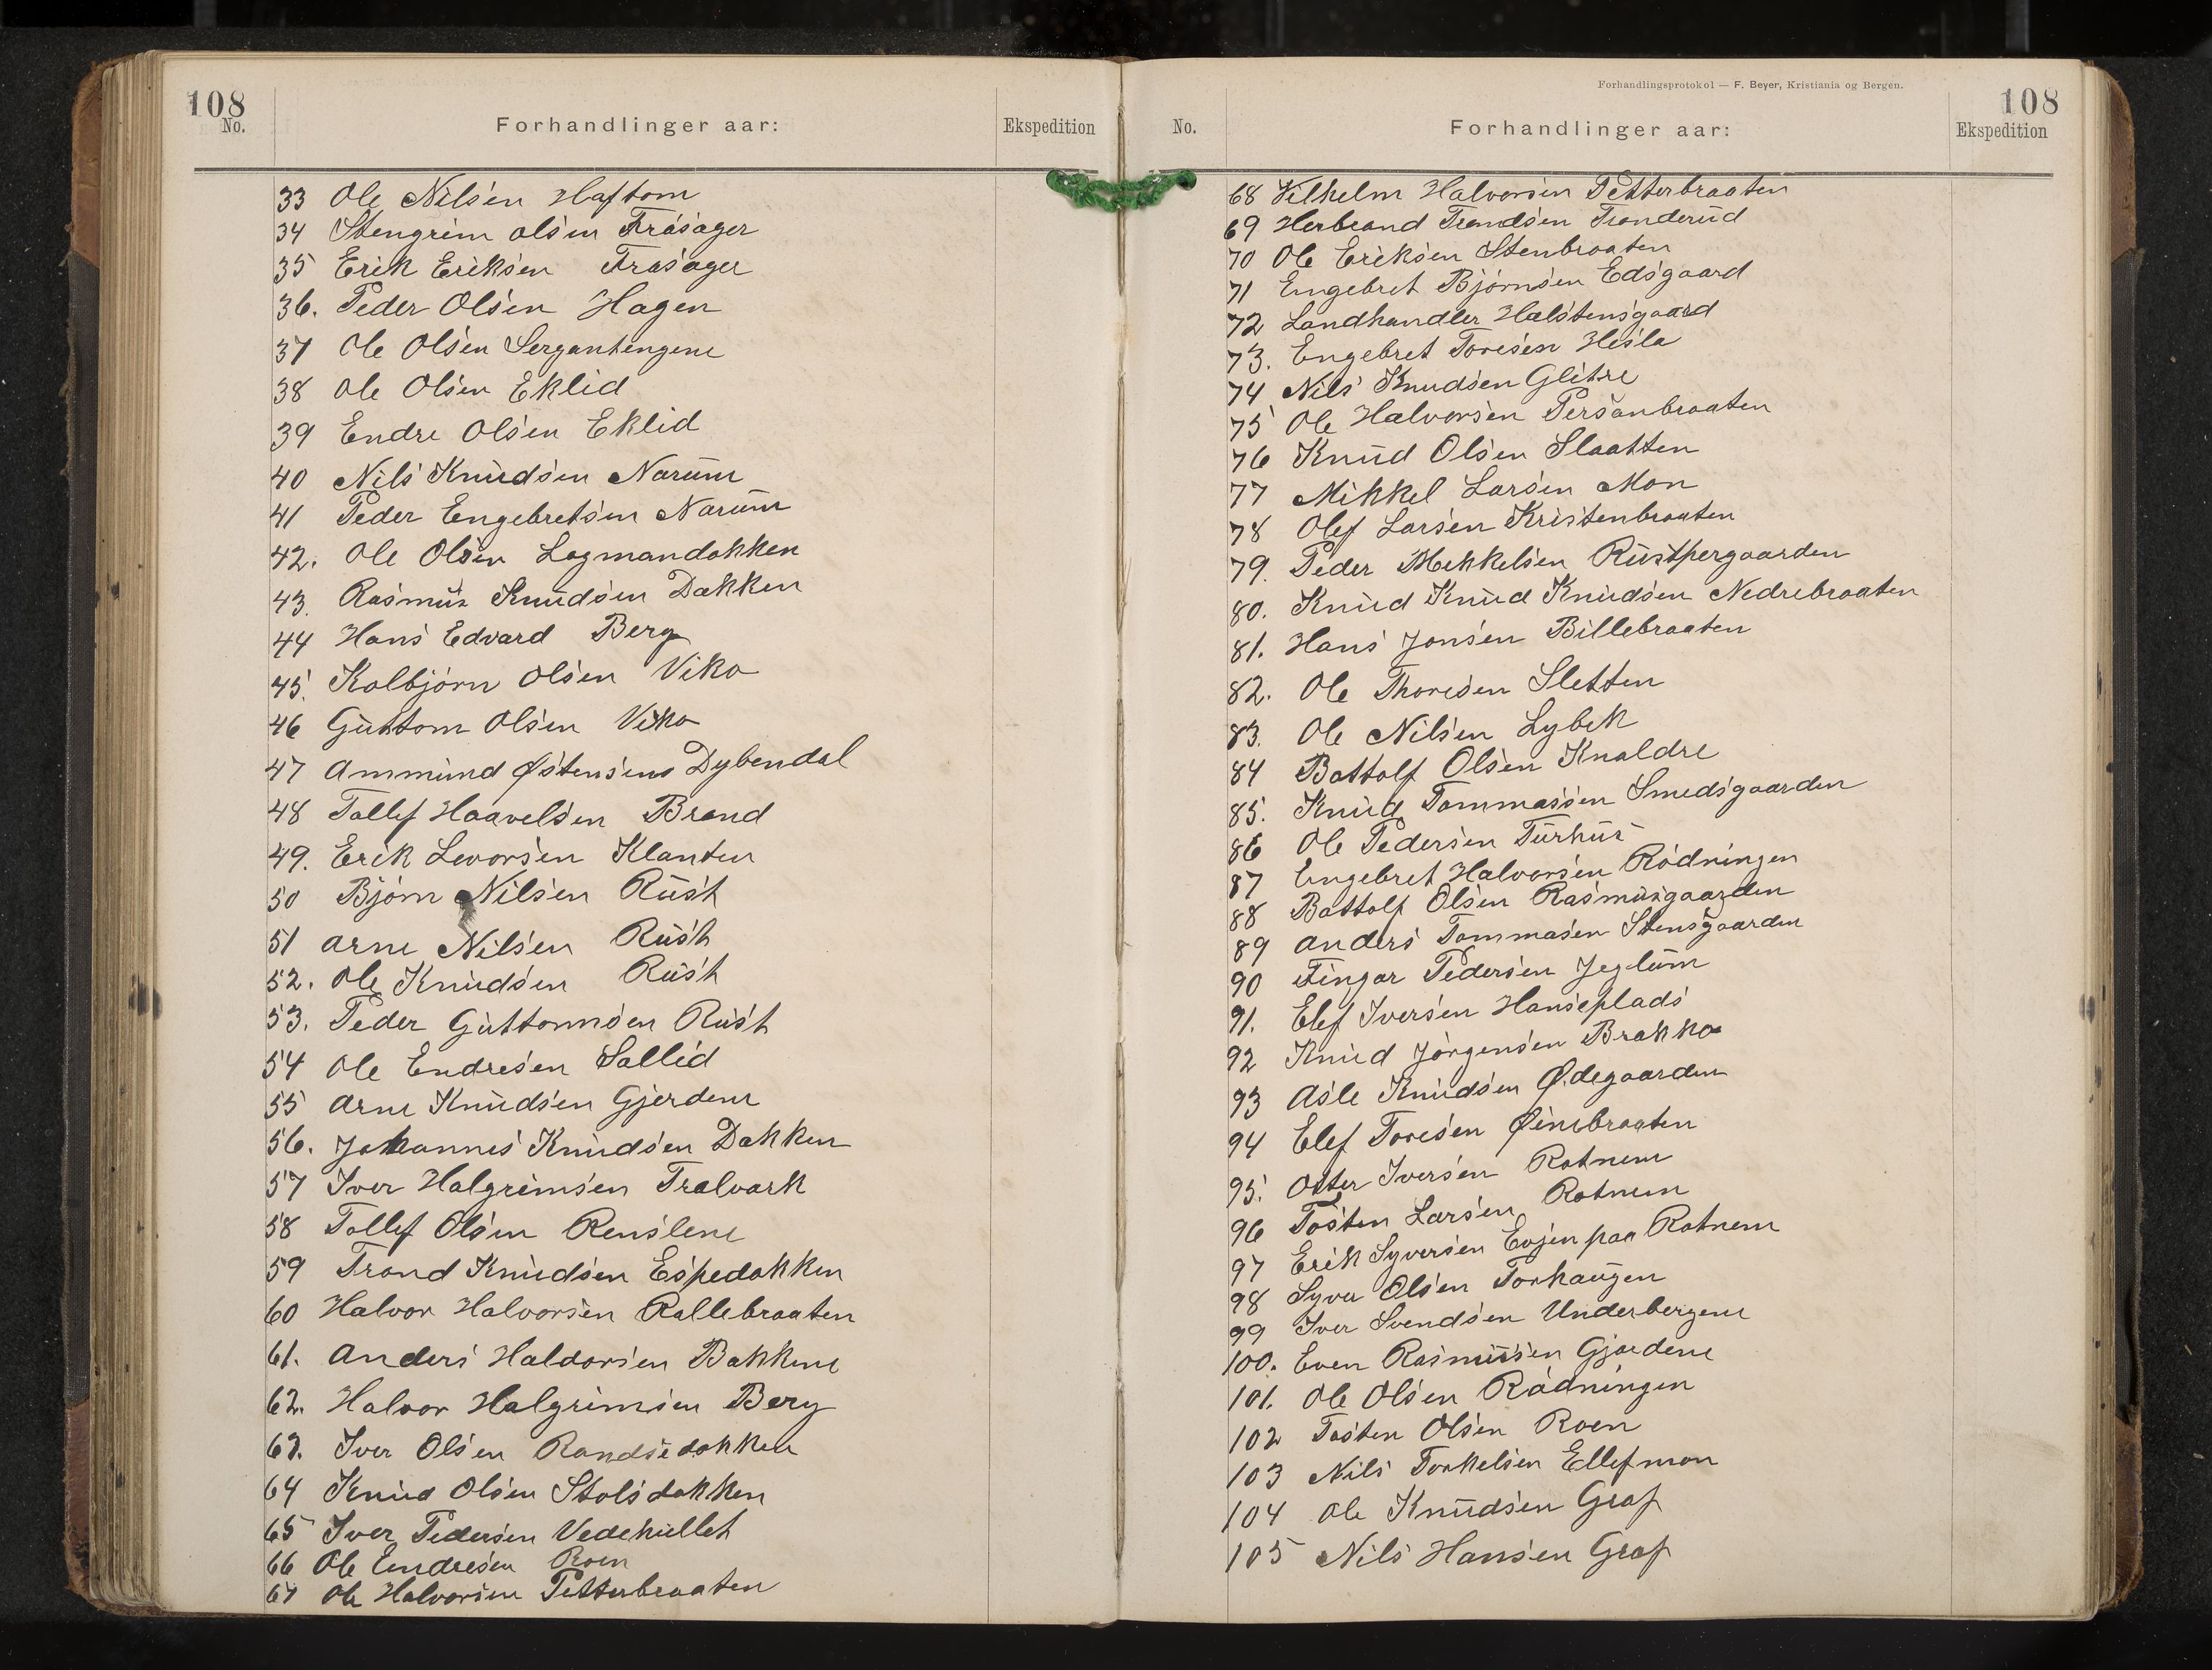 108
No.
Forhandlinger aar:
Ekspedition
33 Ole Nilsen Haftorn
34 Stengrim Olsen Frøsager
35 Erik Eriksen Frasager
36. Peder Olsen Hagen
37 Ole Olsen Sergantengene
38 Ole Olsen Eklid
39 Endre Olsen Eklid
40 Nils Knudsen Narum
41 Peder Engebretsen Narum
42. Ole Olsen Lagmandokken
43. Rasmus Knudsen Dokken
44 Hans Edvard Berg
45. Kolbjørn Olsen Viko
46 Guttorm Olsen Viko
47 Ammund Østensens Dybendal
48 Tollef Haavelsen Brand
49. Erik Levorsen Klanten
50 Bjørn Nilsen Rust
51 Arne Nilsen Rust
52. Ole Knudsen Rust
53. Peder Guttormsen Rust
54 Ole Endresen Sallid
55 Arne Knudsen Gjerdene
56. Johannes Knudsen Dokken
57 Iver Halgrimsen Tralvark
58 Tollef Olsen Renslene
59 Trond Knudsen Espedokken
60 Halvor Halvorsen Rallebraaten
61. Anders Haldorsen Bakkene
62. Halvor Halgrimsen Berg
63. Iver Olsen Randsedokken
64 Knud Olsen Stolsdokken
65 Iver Pedersen Vedehullet
66 Ole Endresen Roen
67 Ole Halvorsen Petterbraaten
Forhandlingsprotokol — F. Beyer, Kristiania og Bergen.
108
No.
Forhandlinger aar:
Ekspedition
68 Vilhelm Halvorsen Petterbraaten
69 Herbrand Trondsen Tronderud
70 Ole Eriksen Stenbraaten
71 Engebret Bjørnsen Edsgaard
72 Landhandler Halstensgaard
73. Engebret Toresen Hesla
74 Nils Knudsen Glitre
75 Ole Halvorsen Persanbraaten
76 Knud Olsen Slaatten
77 Mikkel Larsen Mon
78 Olef Larsen Kristenbraaten
79. Peder Mekkelsen Rustpergaarden
80. Knud Knud Knudsen Nedrebraaten
81. Hans Jonsen Billebraaten
82. Ole Thoresen Sletten
83. Ole Nilsen Lybek
84 Bottolf Olsen Knaldre
85. Knud Tommassen Smedsgaarden
86 Ole Pedersen Turhus
87 Engebret Halvorsen Rødningen
88 Bottolf Olsen Rasmusgaarden
89 Anders Tommasen Stensgaarden
90 Fingar Pedersen Jeglum
91. Elef Iversen Hanseplads
92 Knud Jørgensen Brakko
93 Asle Knudsen Ødegaarden
94 Elef Toresen Øinebraaten
95. Otter Iversen Rotnem
96 Tosten Larsen Rotnem
97 Erik Syversen Evjen paa Rotnem
98 Syver Olsen Torhaugen
99 Iver Svendsen Underbergene
100. Even Rasmussen Gjærdene
101. Ole Olsen Rødningen
102 Tosten Olsen Roen
103 Nils Torkelsen Ellefmon
104 Ole Knudsen Graf
105 Nils Hansen Graf